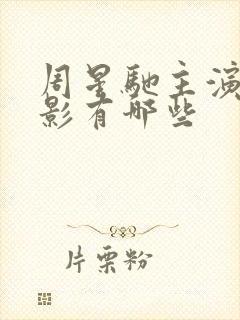 周星驰主演
影有哪些
片栗粉